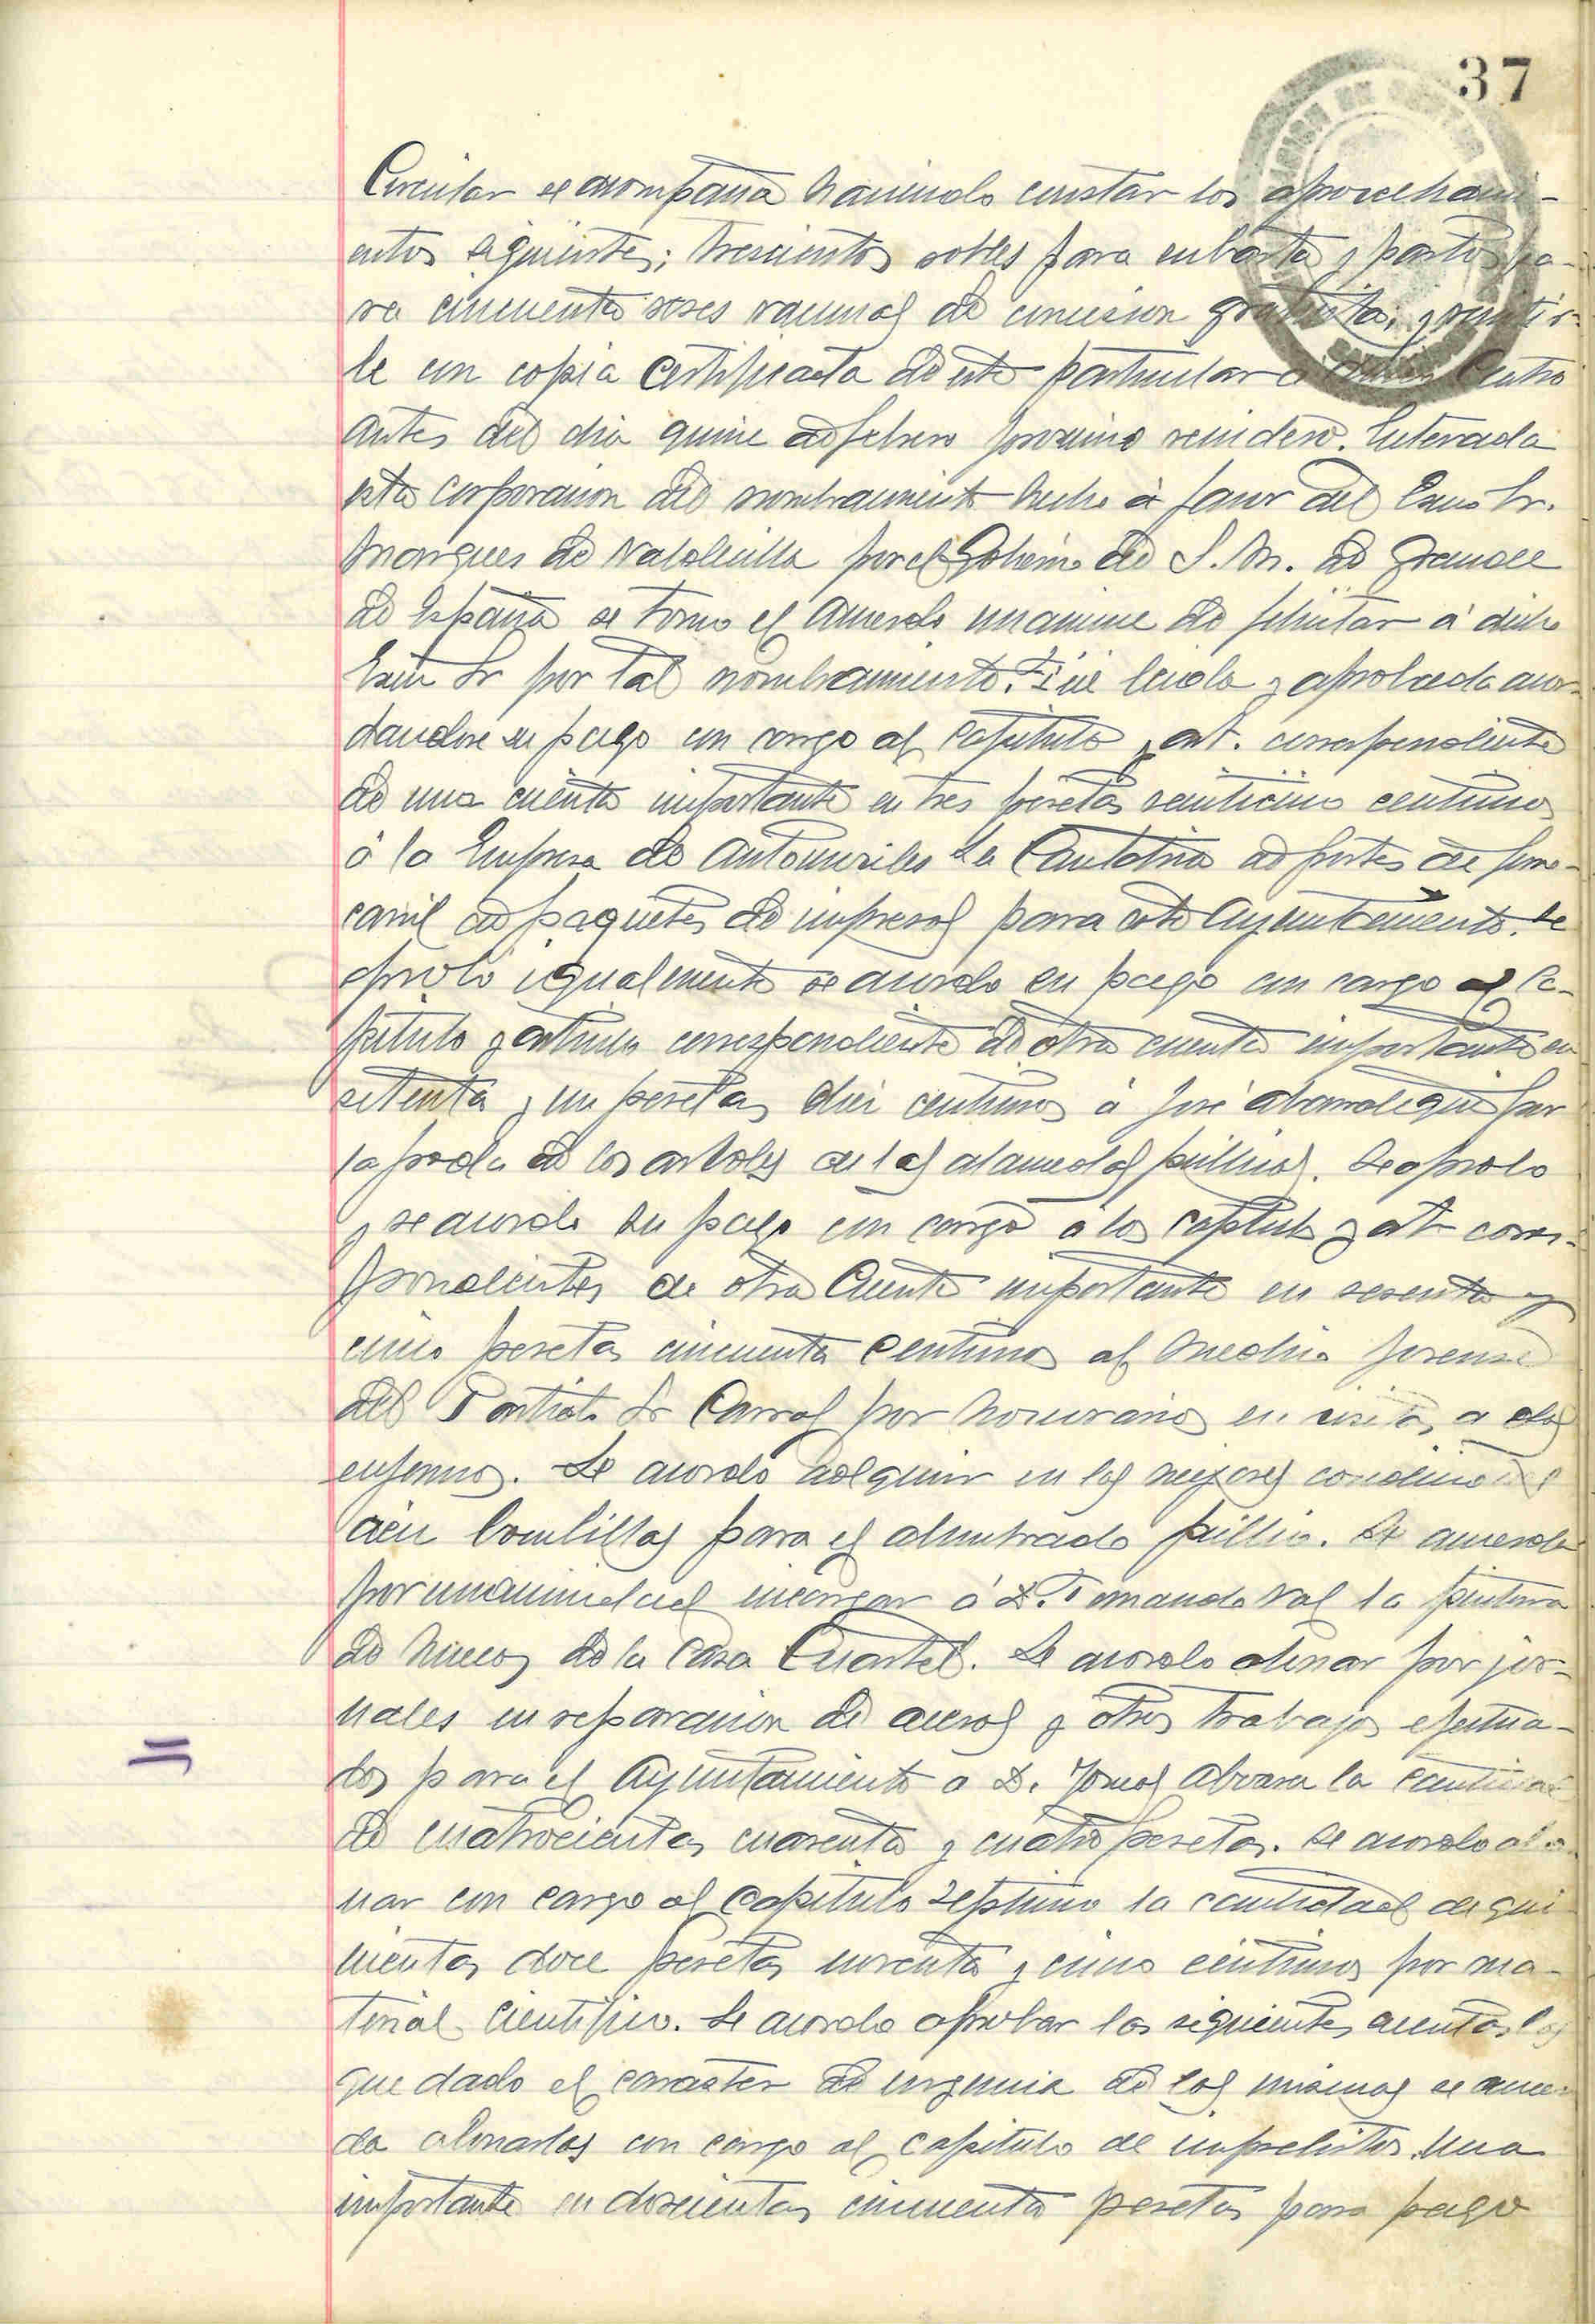 37
Circular se acompaña haciendo constar los aprovechami-
entos siguientes; trescientos robles para subasta y pastos pa-
ra cincuenta reses vacunas de concesion gratuita, y remitir-
le con copia certificada de este particular a Centro
antes del dia quince de febrero proximo venidero. Enterada
esta corporacion del nombramiento hecho á favor del Excmo Sr.
Marques de Valdecilla por el Gobierno de S. M. de Grande
de España se tomo el acuerdo unanime de felicitar á dicho
Excmo Sr por tal nombramiento. Fué leida y aprobada acor-
dandose su pago con cargo al capitulo y art. correspondiente
de una cuenta importante en tres pesetas veinticinco centimos
á la Empresa de Automoviles La Cantabria de portes de ferro-
carril de paquetes de impresos para este Ayuntamiento. Se
aprobó igualmente se acordo su pago con cargo al Ca-
pitulo y articulo correspondiente de otra cuenta importante en
setenta y un pesetas diez centimos á José por
la poda de los arboles de las alamedas públicas. Se aprobo
y se acordo su pago con cargo á los capitulo y art corres-
pondientes de otra cuenta importante en sesenta y
cinco pesetas cincuenta centimos al Medico forense
del Partido Sr Carral por honorarios en visitas a dos
enfermos. Se acordo adquirir en las mejores condiciones
cien bombillas para el alumbrado público. Se acuerda
por unanimidad encargar á D. Fernando Val la pintura
de huecos de la Casa Cuartel. Se acordo abonar por jor-
nales en reparacion de aceras y otros trabajos efectua-
dos para el Ayuntamiento a D. Tomas la cantidad
de cuatrocientas cuarenta y cuatro pesetas. Se acordo abo-
nar con cargo al Capitulo septimo la cantidad de qui-
nientas doce pesetas noventa y cinco centimos por ma-
terial cientifico. Se acordo aprobar las siguientes cuentas las
que dado el caracter de urgencia de las mismas se acuer-
da abonarlas con cargo al capitulo de imprevistos. Una
importante en doscientas cincuenta pesetas para pago